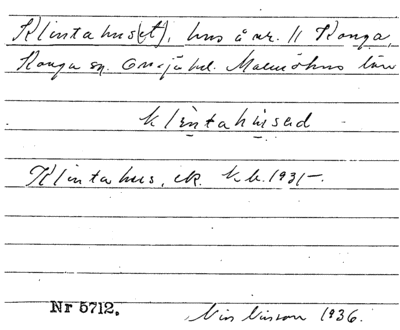 Klintahus(et), hus å nr. 11 Konga,
Konga sn. Onsjö hd. Malmöhus län
klintahusəd
Klintahus, ek. kb. 1931-.
Nr 5712.
Nils Nilsson 1936.